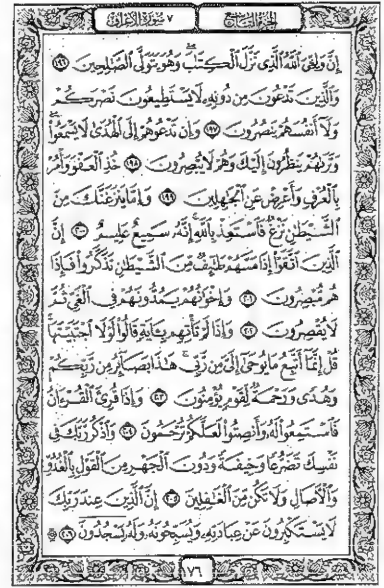 الجزء التاسع ٧ سورة الأعراف
إِنَّ وَلِـِّۧىَ ٱللَّهُ ٱلَّذِى نَزَّلَ ٱلْكِتَـٰبَ ۖ وَهُوَ يَتَوَلَّى ٱلصَّـٰلِحِينَ ١٩٦
وَٱلَّذِينَ تَدْعُونَ مِن دُونِهِۦ لَا يَسْتَطِيعُونَ نَصْرَكُمْ
وَلَآ أَنفُسَهُمْ يَنصُرُونَ ١٩٧ وَإِن تَدْعُوهُمْ إِلَى ٱلْهُدَىٰ لَا يَسْمَعُوا۟ ۖ
وَتَرَىٰهُمْ يَنظُرُونَ إِلَيْكَ وَهُمْ لَا يُبْصِرُونَ ١٩٨ خُذِ ٱلْعَفْوَ وَأْمُرْ
بِٱلْعُرْفِ وَأَعْرِضْ عَنِ ٱلْجَـٰهِلِينَ ١٩٩ وَإِمَّا يَنزَغَنَّكَ مِنَ
ٱلشَّيْطَـٰنِ نَزْغٌ فَٱسْتَعِذْ بِٱللَّهِ ۚ إِنَّهُۥ سَمِيعٌ عَلِيمٌ ٢٠٠ إِنَّ
ٱلَّذِينَ ٱتَّقَوْا۟ إِذَا مَسَّهُمْ طَـٰٓئِفٌ مِّنَ ٱلشَّيْطَـٰنِ تَذَكَّرُوا۟ فَإِذَا
هُم مُّبْصِرُونَ ٢٠١ وَإِخْوَٰنُهُمْ يَمُدُّونَهُمْ فِى ٱلْغَىِّ ثُمَّ
لَا يُقْصِرُونَ ٢٠٢ وَإِذَا لَمْ تَأْتِهِم بِـَٔايَةٍ قَالُوا۟ لَوْلَا ٱجْتَبَيْتَهَا ۚ
قُلْ إِنَّمَآ أَتَّبِعُ مَا يُوحَىٰٓ إِلَىَّ مِن رَّبِّى ۚ هَـٰذَا بَصَآئِرُ مِن رَّبِّكُمْ
وَهُدًى وَرَحْمَةٌ لِّقَوْمٍ يُؤْمِنُونَ ٢٠٣ وَإِذَا قُرِئَ ٱلْقُرْءَانُ
فَٱسْتَمِعُوا۟ لَهُۥ وَأَنصِتُوا۟ لَعَلَّكُمْ تُرْحَمُونَ ٢٠٤ وَٱذْكُر رَّبَّكَ فِى
نَفْسِكَ تَضَرُّعًا وَخِيفَةً وَدُونَ ٱلْجَهْرِ مِنَ ٱلْقَوْلِ بِٱلْغُدُوِّ
وَٱلْـَٔاصَالِ وَلَا تَكُن مِّنَ ٱلْغَـٰفِلِينَ ٢٠٥ إِنَّ ٱلَّذِينَ عِندَ رَبِّكَ
لَا يَسْتَكْبِرُونَ عَنْ عِبَادَتِهِۦ وَيُسَبِّحُونَهُۥ وَلَهُۥ يَسْجُدُونَ ۩ ٢٠٦
١٧٦